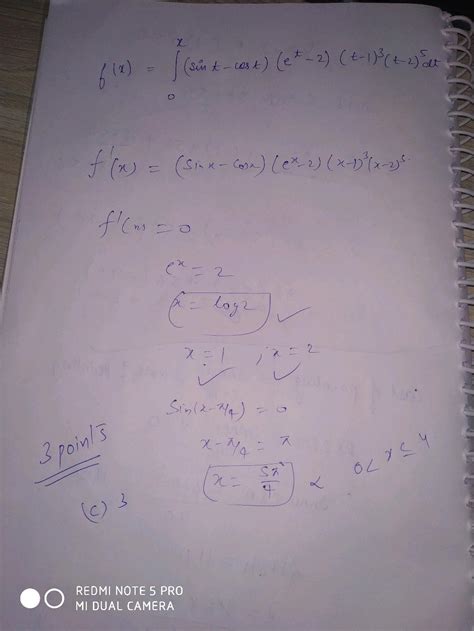 f(x) = ∫₀ˣ (sin t - cos t) (eᵗ - 2) (t-1)³ (t-2)⁵ dt
f'(x) = (sin x - cos x) (eˣ - 2) (x-1)³ (x-2)⁵
f'(x) = 0
eˣ = 2
x = log 2 ✓
x = 1 , x = 2
✓ ✓
Sin(x - π/4) = 0
x - π/4 = π
3 points
x = 5π/4
0 < x ≤ 4
(c) 3
REDMI NOTE 5 PRO
MI DUAL CAMERA